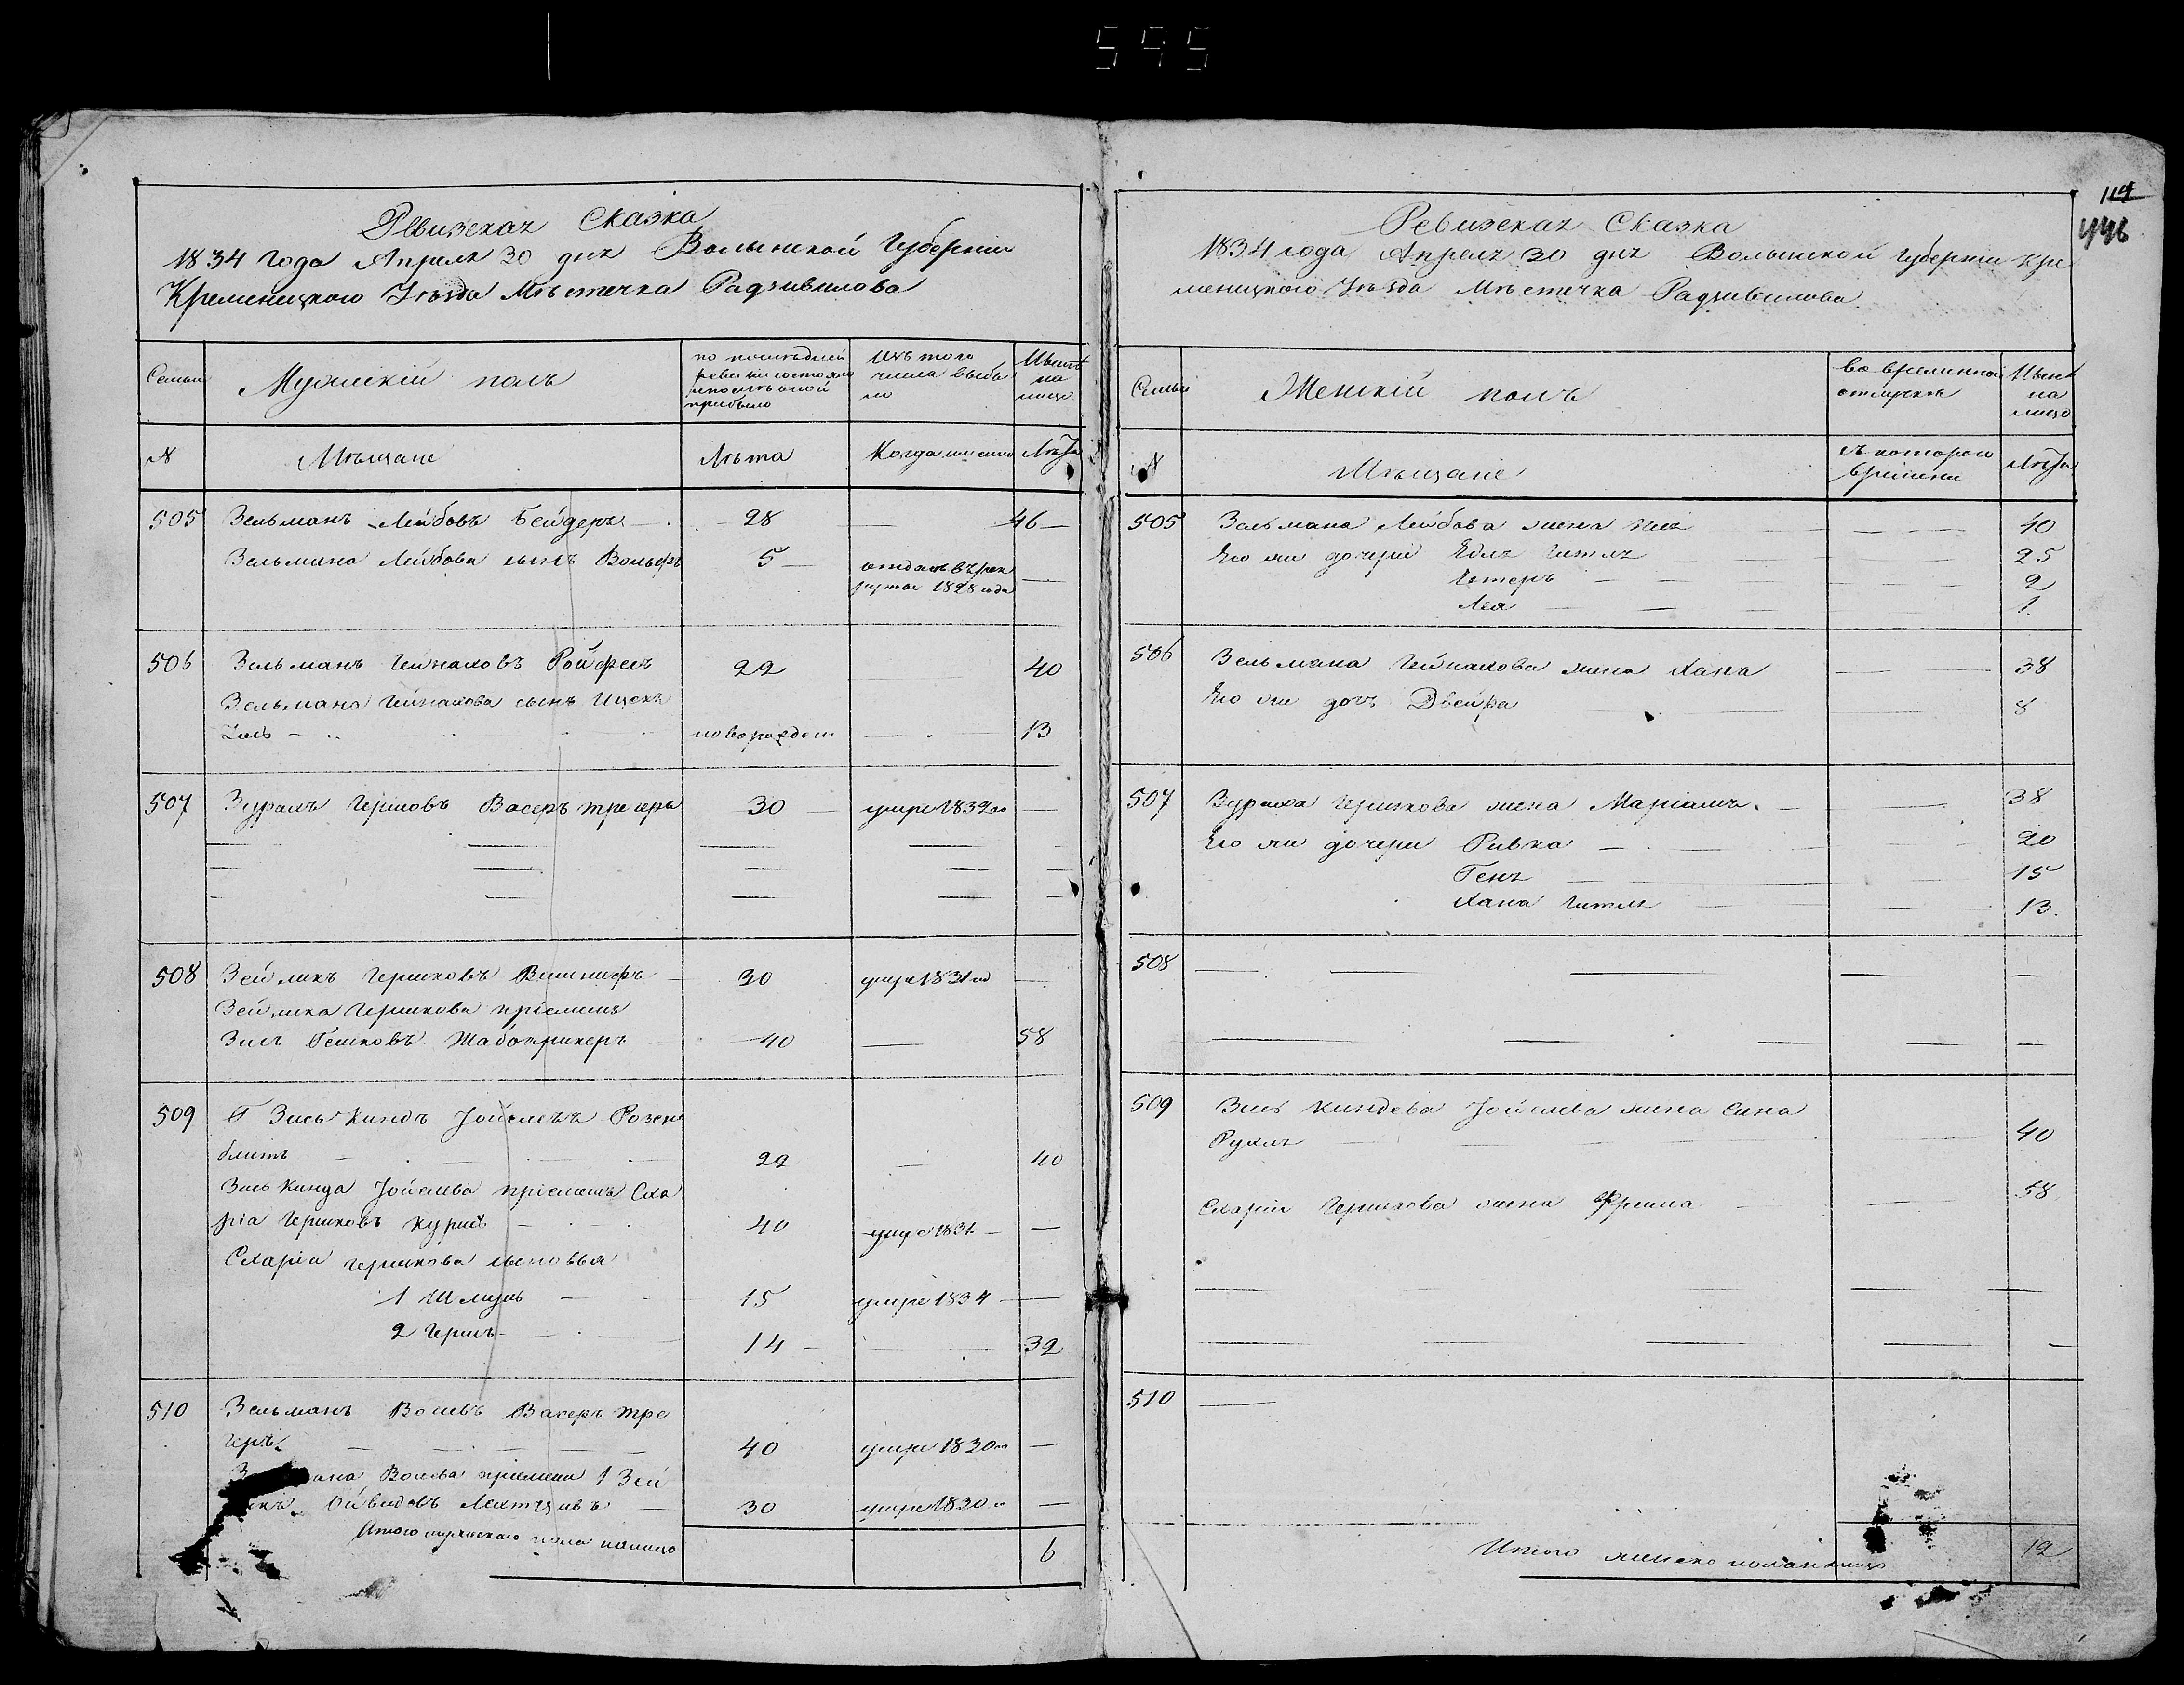 595
Ревизская Сказка
1834 года Апреля 30 дня Волынской Губернии
Кременецкого Уезда Мѣстечка Радзивилова
Семьи
Мужескій полъ
по последней
ревизии состояло
и после оной
прибыло
Изъ того
числа выбы
ло
Нынѣ
на
лицо
№
Мѣщане
Лѣта
Когда именно
Лѣта
505 Зельманъ Лейбовъ Бейдеръ 28 — 46
Зельмана Лейбова сынъ Вольфъ 5 отданъ въ рек
руты 1828 года —
506 Зельманъ Гейнаховъ Ройфенъ 22 40
Зельмана Гейнахова сынъ Ицекъ
новорожден — 13
507 Гершковъ Васеръ трегеръ 30 умре 1832 го —
508 Зейликъ Гершковъ 30 умре 1831 го —
Зейлика Гершкова пріемышъ
Зись 40 — 58
509 Зисъ Киндъ Іойслевъ Розен
блитъ 22 — 40
Зись Кинда Іойслева пріемышъ Сха
ріа Гершковъ 40 умре 1831 —
Схаріи Гершкова сыновья
1 Шлёма 15 умре 1834 —
2 Гершъ 14 — 32
510 Зельманъ Волевъ Васеръ тре
геръ 40 умре 1830 го —
Волева пріемыш 1 Зей
30 умре 1830 го —
Итого мужескаго пола налицо 6
114
446
Ревизская Сказка
1834 года Апреля 30 дня Волынской Губернии Кре
менецкого Уезда Мѣстечка Радзивилова
Семьи
Женскій полъ
во временной
отлучкѣ
Нынѣ
на
лицо
№
Мѣщане
съ которого
времени
Лѣта
505 Зельмана Лейбова жена 40
Его же дочери Едля Гитля 25
Естеръ 2
Лея 1
506 Зельмана Гейнахова жена Хана 38
Его же дочь Двейра 8
507 Гершкова жена Маріамъ 38
Его же дочери Ривка 20
Геня 15
Хана Гитля 13
508
509 Зись Киндева Іойслева жена Сина
Рухля 40
Схаріи Гершкова жена Фрима 58
510
Итого женско пола налицо 12